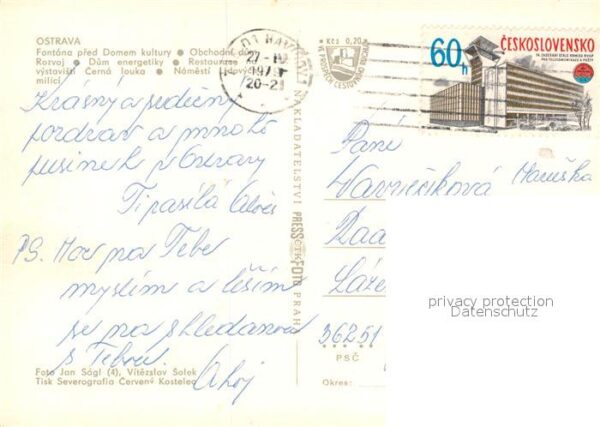 OSTRAVA
Fontána před Domem kultury ● Obchodní dům
Rozvoj ● Dům energetiky ● Restaurace
výstavišti Černá louka ● Náměstí Lidových
milicí
Krásný a srdečný
pozdrav a mnoho
pusinek z Ostravy
Ti posílá Aleš
PS. Moc na Tebe
myslím a těším
se na shledanou
s Tebou.
Ahoj
Foto Jan Ságl (4), Vítězslav Šolek
Tisk Severografia Červený Kostelec
NAKLADATELSTVÍ PRESSFOTO PRAHA
ČTK
27.-
1979
20-21
Kčs 0,20
60h
ČESKOSLOVENSKO
Paní
Vavrečková Maruška
Láz
36251
PSČ
Okres:
privacy protection
Datenschutz